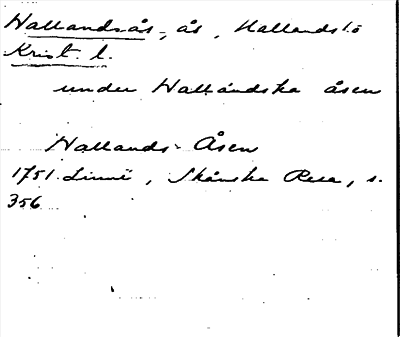 Hallandsås, ås, Hallands lö
Krist. l.
under Halländska åsen
Hallands-Åsen
1751. Linné, Skånska Resa, s.
356